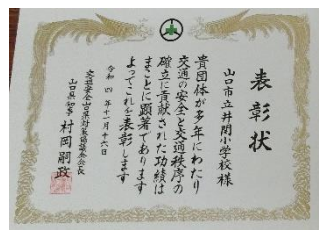 表彰状
山口市立井関小学校様
貴団体が多年にわたり
交通の安全と交通秩序の
確立に貢献された功績は
まことに顕著であります
よってこれを表彰します
令和四年十一月十六日
交通安全山口県対策協議会会長
山口県知事 村岡嗣政